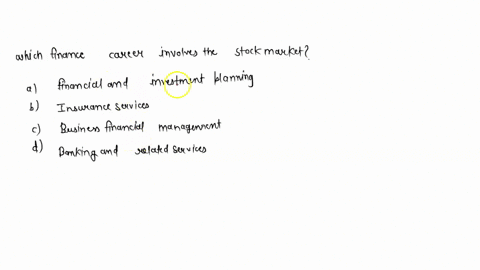 which finance career involves the stock market?
a) financial and investment planning
b) Insurance services
c) Business financial management
d) Banking and related services